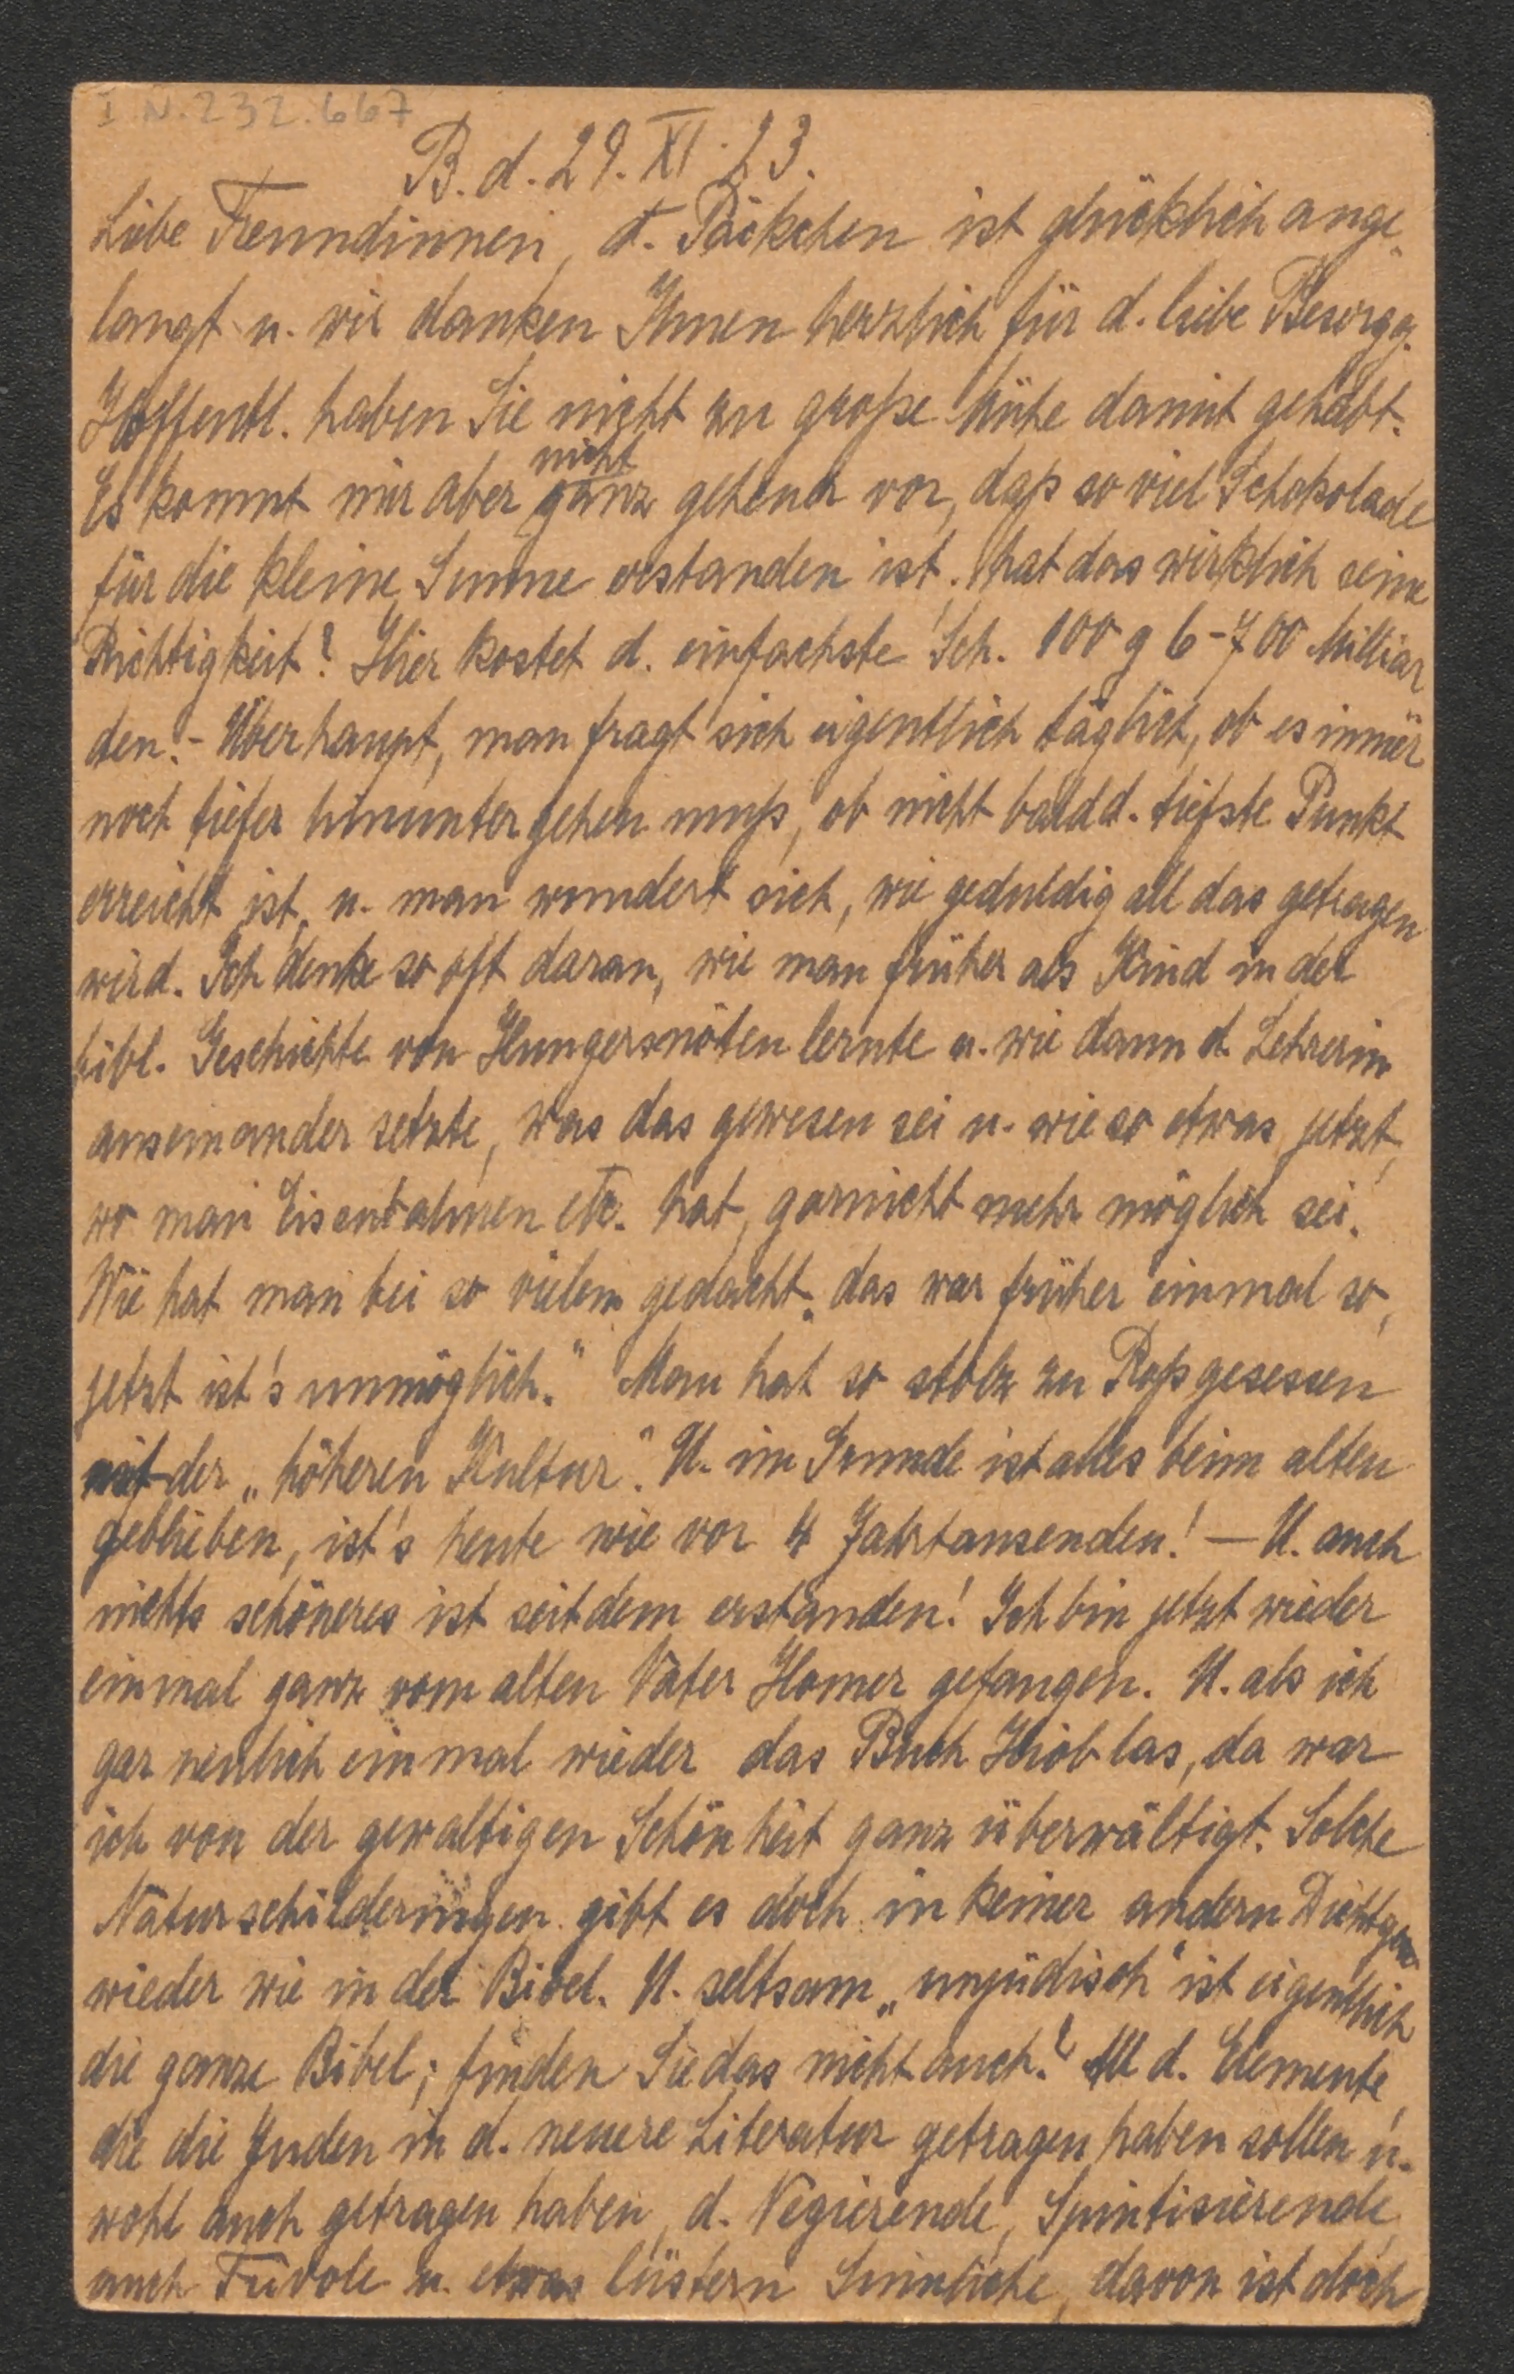 I.N. 232.667
B. d. 29. XI. 23.
Liebe Freundinnen, d. Päckchen ist glücklich ange-
langt u. wir danken Ihnen herzlich für d. liebe Besorgg.
Hoffentl. haben Sie nicht zu große Mühe damit gehabt.
nicht
Es kommt mir aber ganz geheuer vor, daß so viel Schokolade
für die kleine Summe erstanden ist, hat das wirklich seine
Richtigkeit? Hier kostet d. einfachste Sch. 100 g 6-700 Milliar
den! - Überhaupt, man fragt sich eigentlich täglich, ob es immer
noch tiefer hinuntergehen muß, ob nicht bald d. tiefste Punkt
erreicht ist, u. man wundert sich, wie geduldig all das getragen
wird. Ich denke so oft daran, wie man früher als Kind in der
bibl. Geschichte von Hungersnöten lernte u. wie dann d. Lehrerin
auseinander setzte, was das gewesen sei u. wie so etwas jetzt,
wo man Eisenbahnen etc. hat, garnicht mehr möglich sei.
Wie hat man bei so vielem gedacht „das war früher einmal so,
jetzt ist's unmöglich." Man hat so stolz zu Roß gesessen
mit der „höheren Kultur". U. im Grunde ist alles beim alten
geblieben, ist's heute wie vor 4 Jahrtausenden! — U. auch
nichts schöneres ist seitdem erstanden! Ich bin jetzt wieder
einmal ganz vom alten Vater Homer gefangen. U. als ich
gar neulich einmal wieder das Buch Hiob las, da war
ich von der gewaltigen Schönheit ganz überwältigt. Solche
Naturschilderungen gibt es doch in keiner andern Dichtgen
wieder wie in der Bibel. U. seltsam „unjüdisch" ist eigentlich
die ganze Bibel; finden Sie das nicht auch? All d. Elemente,
die die Juden in d. neuere Literatur getragen haben sollen u.
wohl auch getragen haben, d. Negierende, Spintisierende,
auch Frivole u. etwas lüstern Sinnliche, davon ist doch